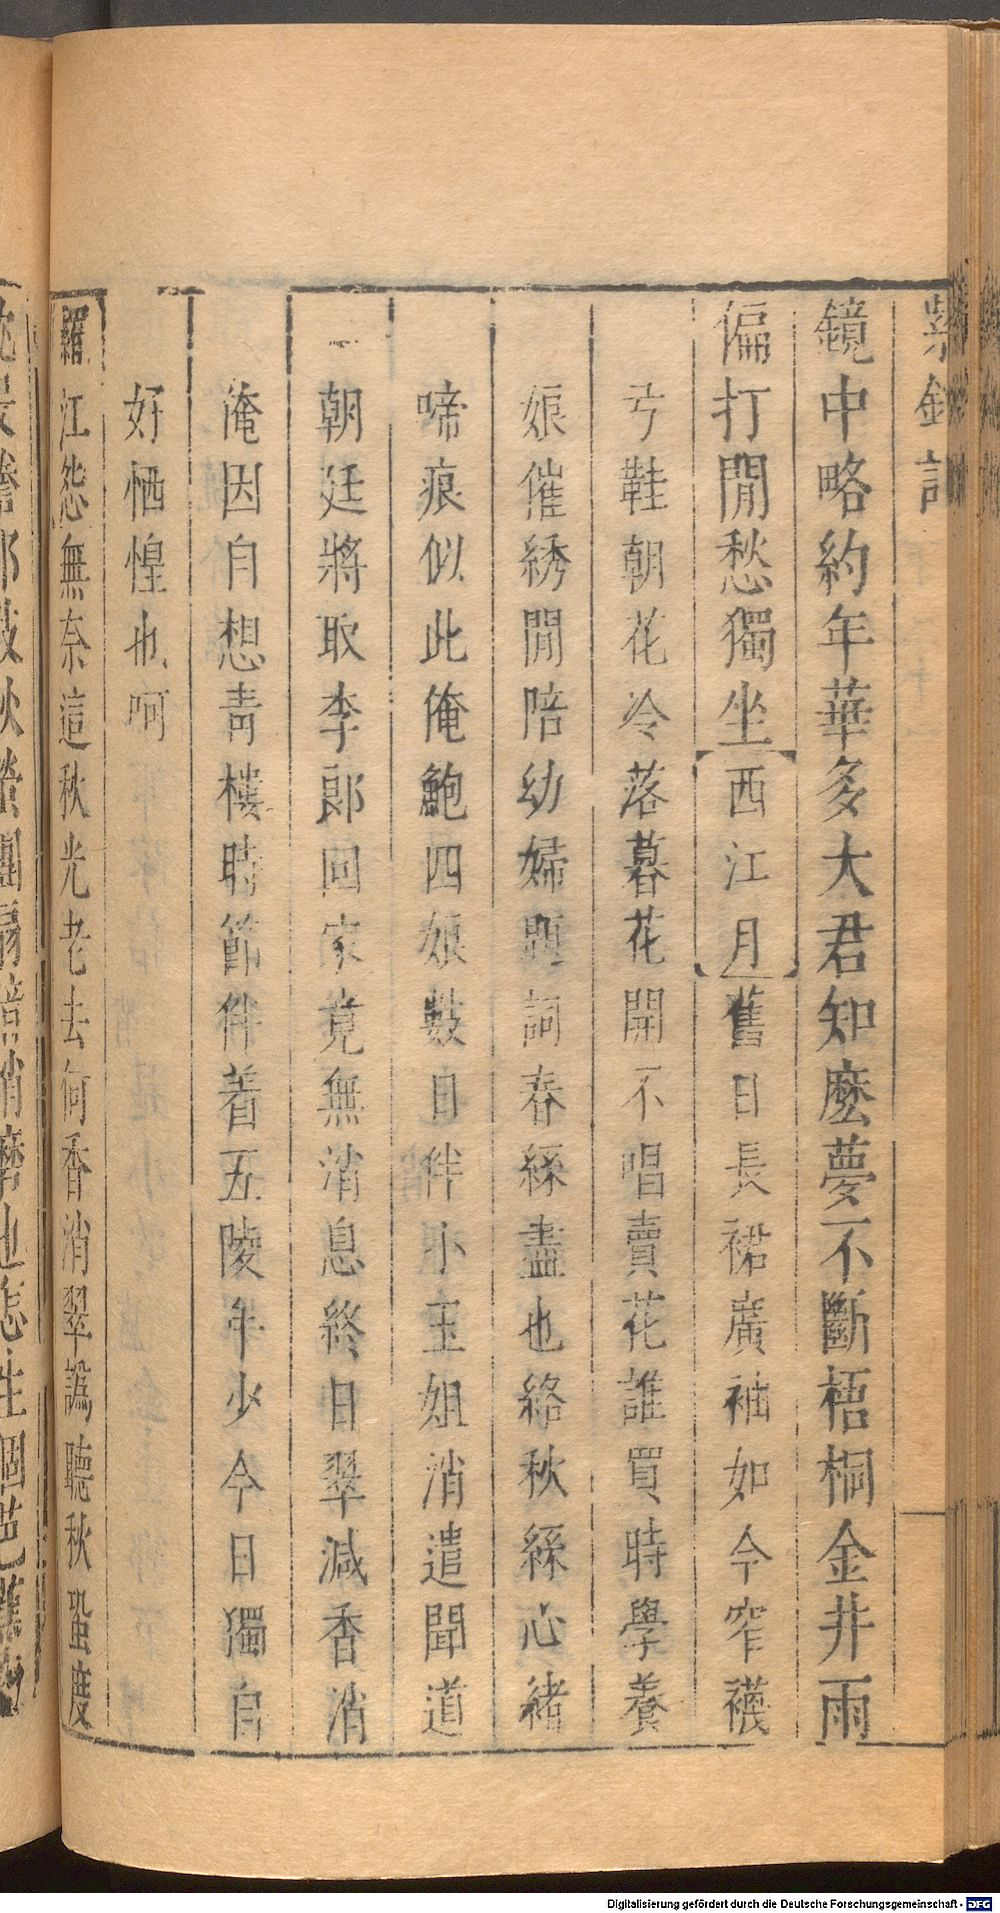 紫釵記
鏡中略約年華多大君知麽夢不斷梧桐金井雨
偏打閒愁獨坐西江月舊日長裙廣袖如今窄襪
弓鞋朝花冷落暮花開不唱賣花誰買時學養
娘催綉閒陪幼婦題詞春絲盡也絡秋絲心緒
啼痕似此俺鮑四娘數日伴小玉姐消遣聞道
朝廷將取李郎回家竟無消息終日翠減香消
俺因自想青樓時節伴着五陵年少今日獨自
好恓惶也呵
羅江怨無奈這秋光老去何香消翠譌聽秋蛩度
Digitalisierung gefördert durch die Deutsche Forschungsgemeinschaft - DFG